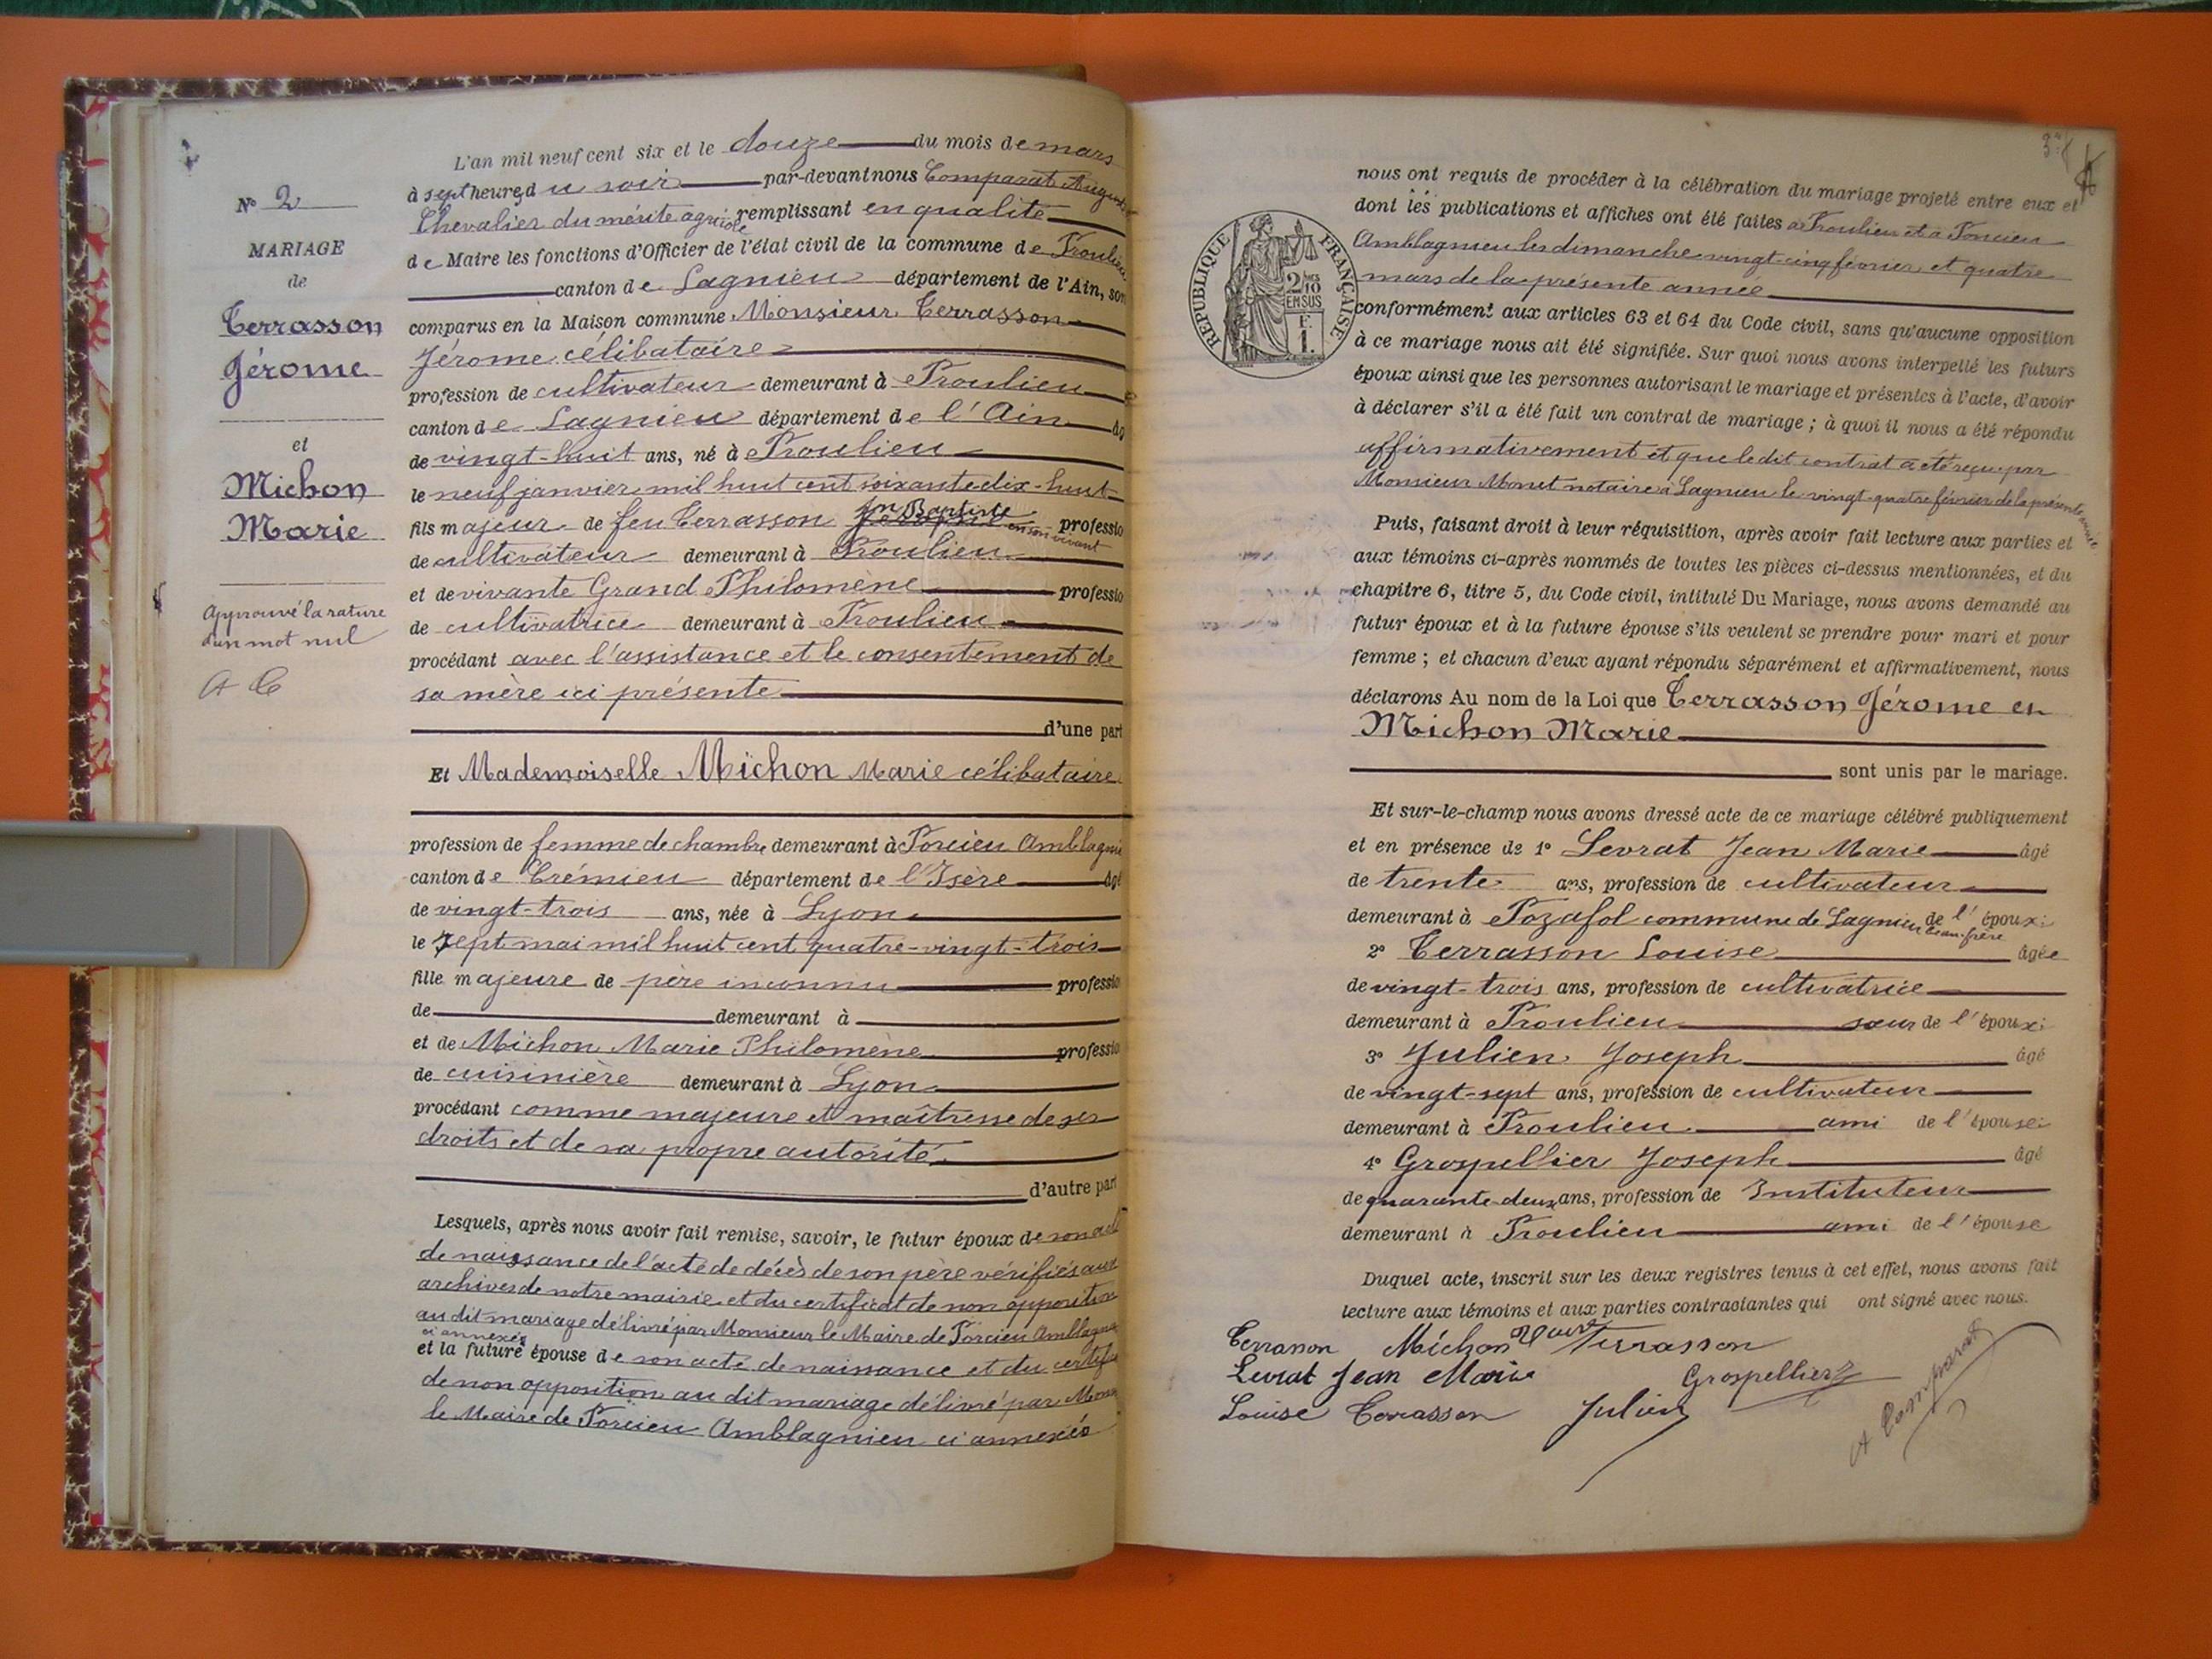 N° 2
MARIAGE
de
Terrasson
Jérome
et
Michon
Marie
Approuvé la rature
d'un mot nul
A C
L'an mil neuf cent six et le douze du mois de mars
à sept heures du soir par-devant nous Comparat
Chevalier du mérite agricole remplissant en qualité
de Maire les fonctions d'Officier de l'état civil de la commune de Proulieu
canton de Lagnieu département de l'Ain, son
comparus en la Maison commune Monsieur Terrasson
Jérome célibataire
profession de cultivateur demeurant à Proulieu
canton de Lagnieu département de l'Ain âg
de vingt-huit ans, né à Proulieu
le neuf janvier mil huit cent soixante dix-huit
fils majeur de feu Terrasson Jn Baptiste en son vivant professio
de cultivateur demeurant à Proulieu
et de vivante Grand Philomène professio
de cultivatrice demeurant à Proulieu
procédant avec l'assistance et le consentement de
sa mère ici présente
d'une part
Et Mademoiselle Michon Marie célibataire
profession de femme de chambre demeurant à Porcieu Amblagnie
canton de Crémieu département de l'Isère âgé
de vingt-trois ans, née à Lyon
le sept mai mil huit cent quatre-vingt-trois
fille majeure de père inconnu professio
de demeurant à
et de Michon Marie Philomène professio
de cuisinière demeurant à Lyon
procédant comme majeure et maîtresse de ses
droits et de sa propre autorité
d'autre part
Lesquels, après nous avoir fait remise, savoir, le futur époux de son acte
de naissance de l'acte de décès de son père vérifiés aux
archives de notre mairie et du certificat de non opposition
au dit mariage délivré par Monsieur le Maire de Porcieu Amblagnie
ci annexés
et la future épouse de son acte de naissance et du certifi
de non opposition au dit mariage délivré par Mons
le Maire de Porcieu Amblagnieu ci annexés
nous ont requis de procéder à la célébration du mariage projeté entre eux et
dont les publications et affiches ont été faites à Proulieu et à Porcieu
Amblagnieu les dimanche vingt-cinq février et quatre
mars de la présente année
conformément aux articles 63 et 64 du Code civil, sans qu'aucune opposition
à ce mariage nous ait été signifiée. Sur quoi nous avons interpellé les futurs
époux ainsi que les personnes autorisant le mariage et présentes à l'acte, d'avoir
à déclarer s'il a été fait un contrat de mariage ; à quoi il nous a été répondu
affirmativement et que le dit contrat a été reçu par
Monsieur Monet notaire à Lagnieu le vingt-quatre février de la présente année
RÉPUBLIQUE FRANÇAISE
2/10 EN SUS
F. 1.
Puis, faisant droit à leur réquisition, après avoir fait lecture aux parties et
aux témoins ci-après nommés de toutes les pièces ci-dessus mentionnées, et du
chapitre 6, titre 5, du Code civil, intitulé Du Mariage, nous avons demandé au
futur époux et à la future épouse s'ils veulent se prendre pour mari et pour
femme ; et chacun d'eux ayant répondu séparément et affirmativement, nous
déclarons Au nom de la Loi que Terrasson Jérome et
Michon Marie
sont unis par le mariage.
Et sur-le-champ nous avons dressé acte de ce mariage célébré publiquement
et en présence de 1° Levrat Jean Marie âgé
de trente ans, profession de cultivateur
demeurant à Pozafol commune de Lagnieu beau-frère de l'époux ;
2° Terrasson Louise âgée
de vingt-trois ans, profession de cultivatrice
demeurant à Proulieu sœur de l'époux ;
3° Julien Joseph âgé
de vingt-sept ans, profession de cultivateur
demeurant à Proulieu ami de l'épouse ;
4° Grospellier Joseph âgé
de quarante deux ans, profession de Instituteur
demeurant à Proulieu ami de l'épouse
Duquel acte, inscrit sur les deux registres tenus à cet effet, nous avons fait
lecture aux témoins et aux parties contractantes qui ont signé avec nous.
Terrasson Michon Marie Terrasson
Levrat Jean Marie Grospellier
Louise Terrasson Julien
A Comparat